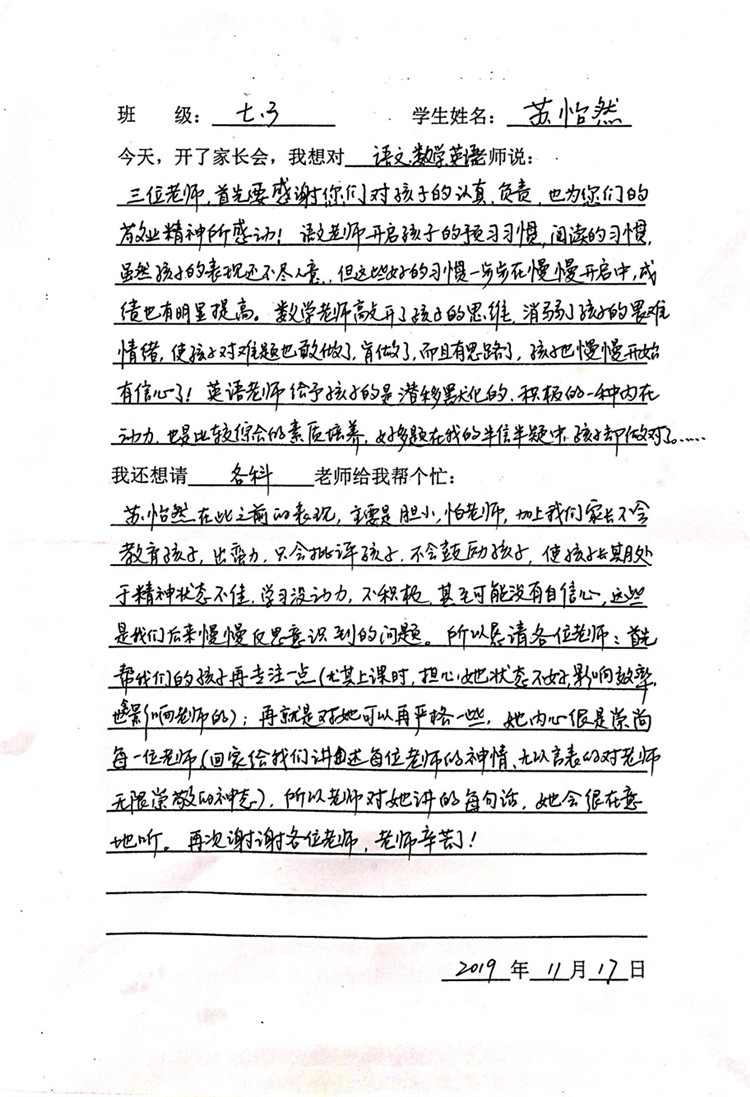 班 级：七.3 学生姓名：苏怡然
今天，开了家长会，我想对 语文.数学英语老师说：
三位老师，首先要感谢你们对孩子的认真，负责，也为您们的
敬业精神所感动！语文老师开启孩子的预习习惯，阅读的习惯，
虽然孩子的表现还不尽人意，但这些好的习惯一步步在慢慢开启中，成
绩也有明显提高。数学老师敲开了孩子的思维，消弱了孩子的畏难
情绪，使孩子对难题也敢做了，肯做了，而且有思路了，孩子也慢慢开始
有信心了！英语老师给予孩子的是潜移默化的，积极的一种内在
动力，也是比较综合的素质培养，好多题在我的半信半疑中，孩子却做对了……
我还想请 各科 老师给我帮个忙：
苏怡然在此之前的表现，主要是胆小，怕老师，加上我们家长不会
教育孩子，出蛮力，只会批评孩子，不会鼓励孩子，使孩子长期处
于精神状态不佳，学习没动力，不积极，甚至可能没有自信心，这些
是我们后来慢慢反思意识到的问题。所以恳请各位老师：首先
帮我们的孩子再专注一点（尤其上课时，担心她状态不好，影响效率，
也影响老师的）；再就是对她可以再严格一些，她内心很是崇尚
每一位老师（回家给我们讲述每位老师的神情、无以言表的对老师
无限崇敬的神态），所以老师对她讲的每句话，她会很在意
地听。再次谢谢各位老师，老师辛苦了！
2019 年 11 月 17 日